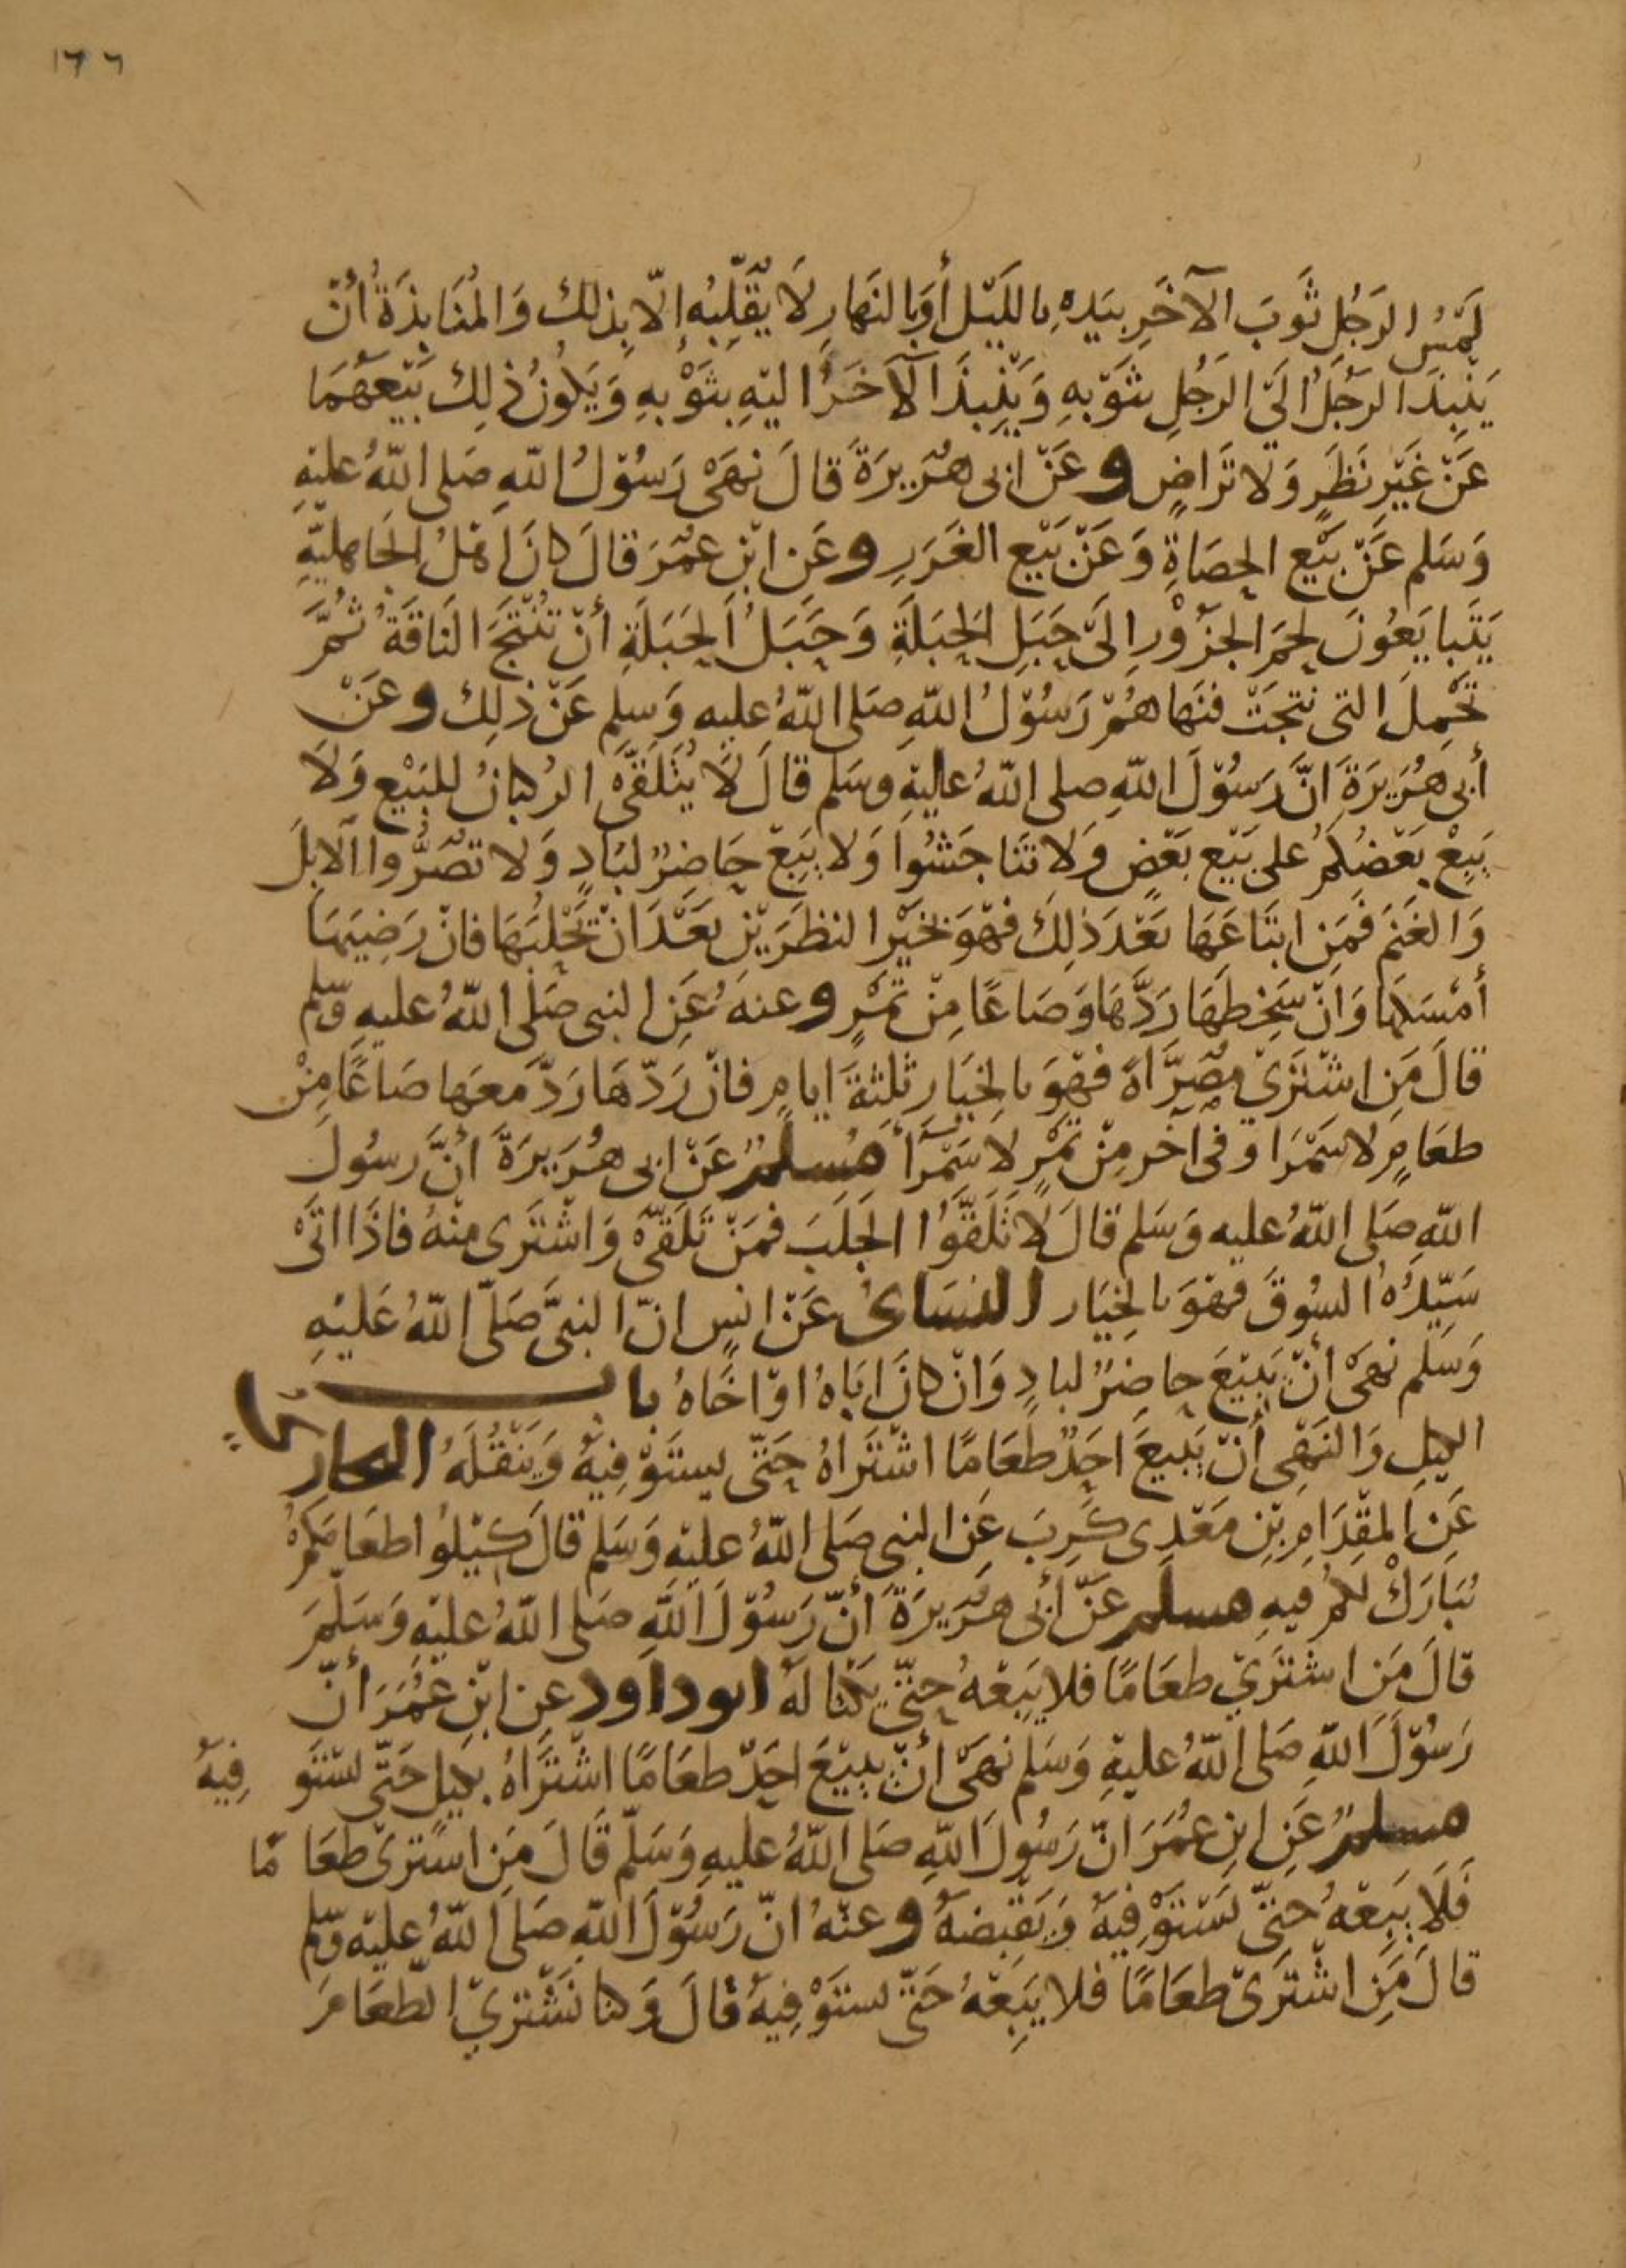 ١٦٦
لَمْسُ الرَجُلِ ثَوبَ الآخَرِ بيَدِهِ بِاللَيْل أوَبِالنَهَارِ لَا يُقَلِّبُهِ إلّا بِذلك وَالمُنَابَذَةُ أنْ
يَنْبِذَ الرَجُلُ الَىَ الرَجُلِ بثَوْبهِ وَيَنْبِذَ الآخَرُ اليْهِ بثَوْبهِ وَيَكُونُ ذلِك بَيْعَهُمَا
عَنْ غَيْرِ نَظَرٍ وَلا تَرَاضٍ وعَنْ ابى هُرَيرَةَ قالَ نهَىْ رَسُوْلُ اللّهِ صَلى اللّهُ عليْهِ
وَسَلم عَنْ بَيْع الحِصَاةِ وَعَنْ بَيْع الغَرَرِ وعَنِ ابْنِ عُمَرَ قالَ كانَ اهْلُ الجَاهليّةِ
يَتَبايَعُونَ لحمَ الجزَوْرِ الَىَ حَبَلِ الحَبَلَةِ وَحَبَلُ الحَبَلَةِ أنْ تُنْتَجَ النَاقَةُ ثُمَّ
تَحْمِلَ التى نتجَتْ فنَهاهُمْ رَسُوْلُ اللّهِ صلى اللّهُ عليه وَسلم عَنْ ذلِك وعَنْ
أبى هُرَيرَةَ انَّ رَسُوْلَ اللّهِ صلى اللّهُ عليْهِ وسَلم قالَ لَا يُتَلَقَّىْ الرُكبانُ للبَيْع وَلَا
يَبِعْ بَعْضُكمُ على بَيْع بَعْضٍ وَلا تَنَاجَشُوا وَلا يَبِعْ حَاضِرٌ لبَادٍ وَلا تصَرُّوا الابِلَ
وَالغَنَمَ فَمَنِ ابتَاعَهَا بَعْدَ ذلِكَ فهْوَ بخَيْرِ النظَرَيْنِ بَعْدَ انْ تَحْلبَهَا فانْ رَضِيَهَا
أمْسَكهَا وَانْ سَخِطَهَا رَدَّهَا وَصَاعًا مِنْ تمْرٍ وعنهُ عَنِ النبى صَلى اللّهُ عليه وسلم
قالَ مَنِ اشْتَرَىْ مُصَرَّاةً فهْوَ بالخِيَارِ ثلثةَ ايامٍ فانْ رَدّهَا رَدَّ معَها صَاعًا مِنْ
طعَامٍ لا سَمْرَا وَفى آخر مِنْ تمْرٍ لا سَمْرَآ مُسلمٌ عَنْ ابى هُرَيرَةَ أنَّ رسُولَ
اللّهِ صَلى اللّهُ عليه وَسَلم قالَ لَا تَلَقَّوُا الجَلَبَ فمَنْ تَلَقَّىْ وَاشْتَرَى منْهُ فاذَا اتَىْ
سَيِّدُهُ السُوقَ فهْوَ بالخِيَار النسَائ عَنْ انسٍ انّ النبىَّ صَلّى اللّهُ عَليْهِ
وَسَلم نهَى أنْ يَبيْعَ حاضِرٌ لبادٍ وَانْ كانَ ابَاهُ اوْ اخَاهُ باب مَا
الكيلِ وَالنَهْىِ أنْ يَبيعَ احَدٌ طعَامًا اشْتَرَاهُ حَتّى يستَوْفِيَهُ وَيَنْقُلَهُ البخارى
عَنِ المقْدَامِ بْنِ مَعْدِى كَرِبَ عَنِ النبى صَلى اللّهُ عليْهِ وَسَلم قالَ كيْلوُا طعَامَكمُ
يُبَارَكْ لكمُ فيهِ مسلم عَنْ أبى هُرَيرَةَ أنّ رَسُوْلَ اللّهِ صَلى اللّهُ عليْهِ وَسَلّمَ
قالَ مَنِ اشْتَرَىْ طعَامًا فلا يَبِعْهُ حتّى يكْتالَهُ ابوداود عنِ ابْنِ عُمَرَ أنّ
رَسُوْلَ اللّهِ صَلى اللّهُ عليْهِ وَسَلم نهَى أنْ يبيْعَ احَدٌ طعَامًا اشْتَرَاهُ بكيلٍ حَتّى يسْتَوفِيَهُ
مسلمٌ عَنِ ابنِ عُمَرَ انّ رَسُولَ اللّهِ صَلى اللّهُ عليهِ وَسَلّم قَالَ مَنِ اشترىْ طعَامًا
فَلَا يَبِعْهُ حتّى يَسْتَوْفِيَهُ وَيَقْبِضَهُ وعنْهُ انّ رَسُوْلَ اللّهِ صَلى اللّهُ عليْه وسلم
قالَ مَنِ اشْتَرَىْ طعَامًا فلا يَبِعْهُ حَتّى يستَوْفِيَهُ قالَ وَكنا نَشْترىْ الطّعَامَ